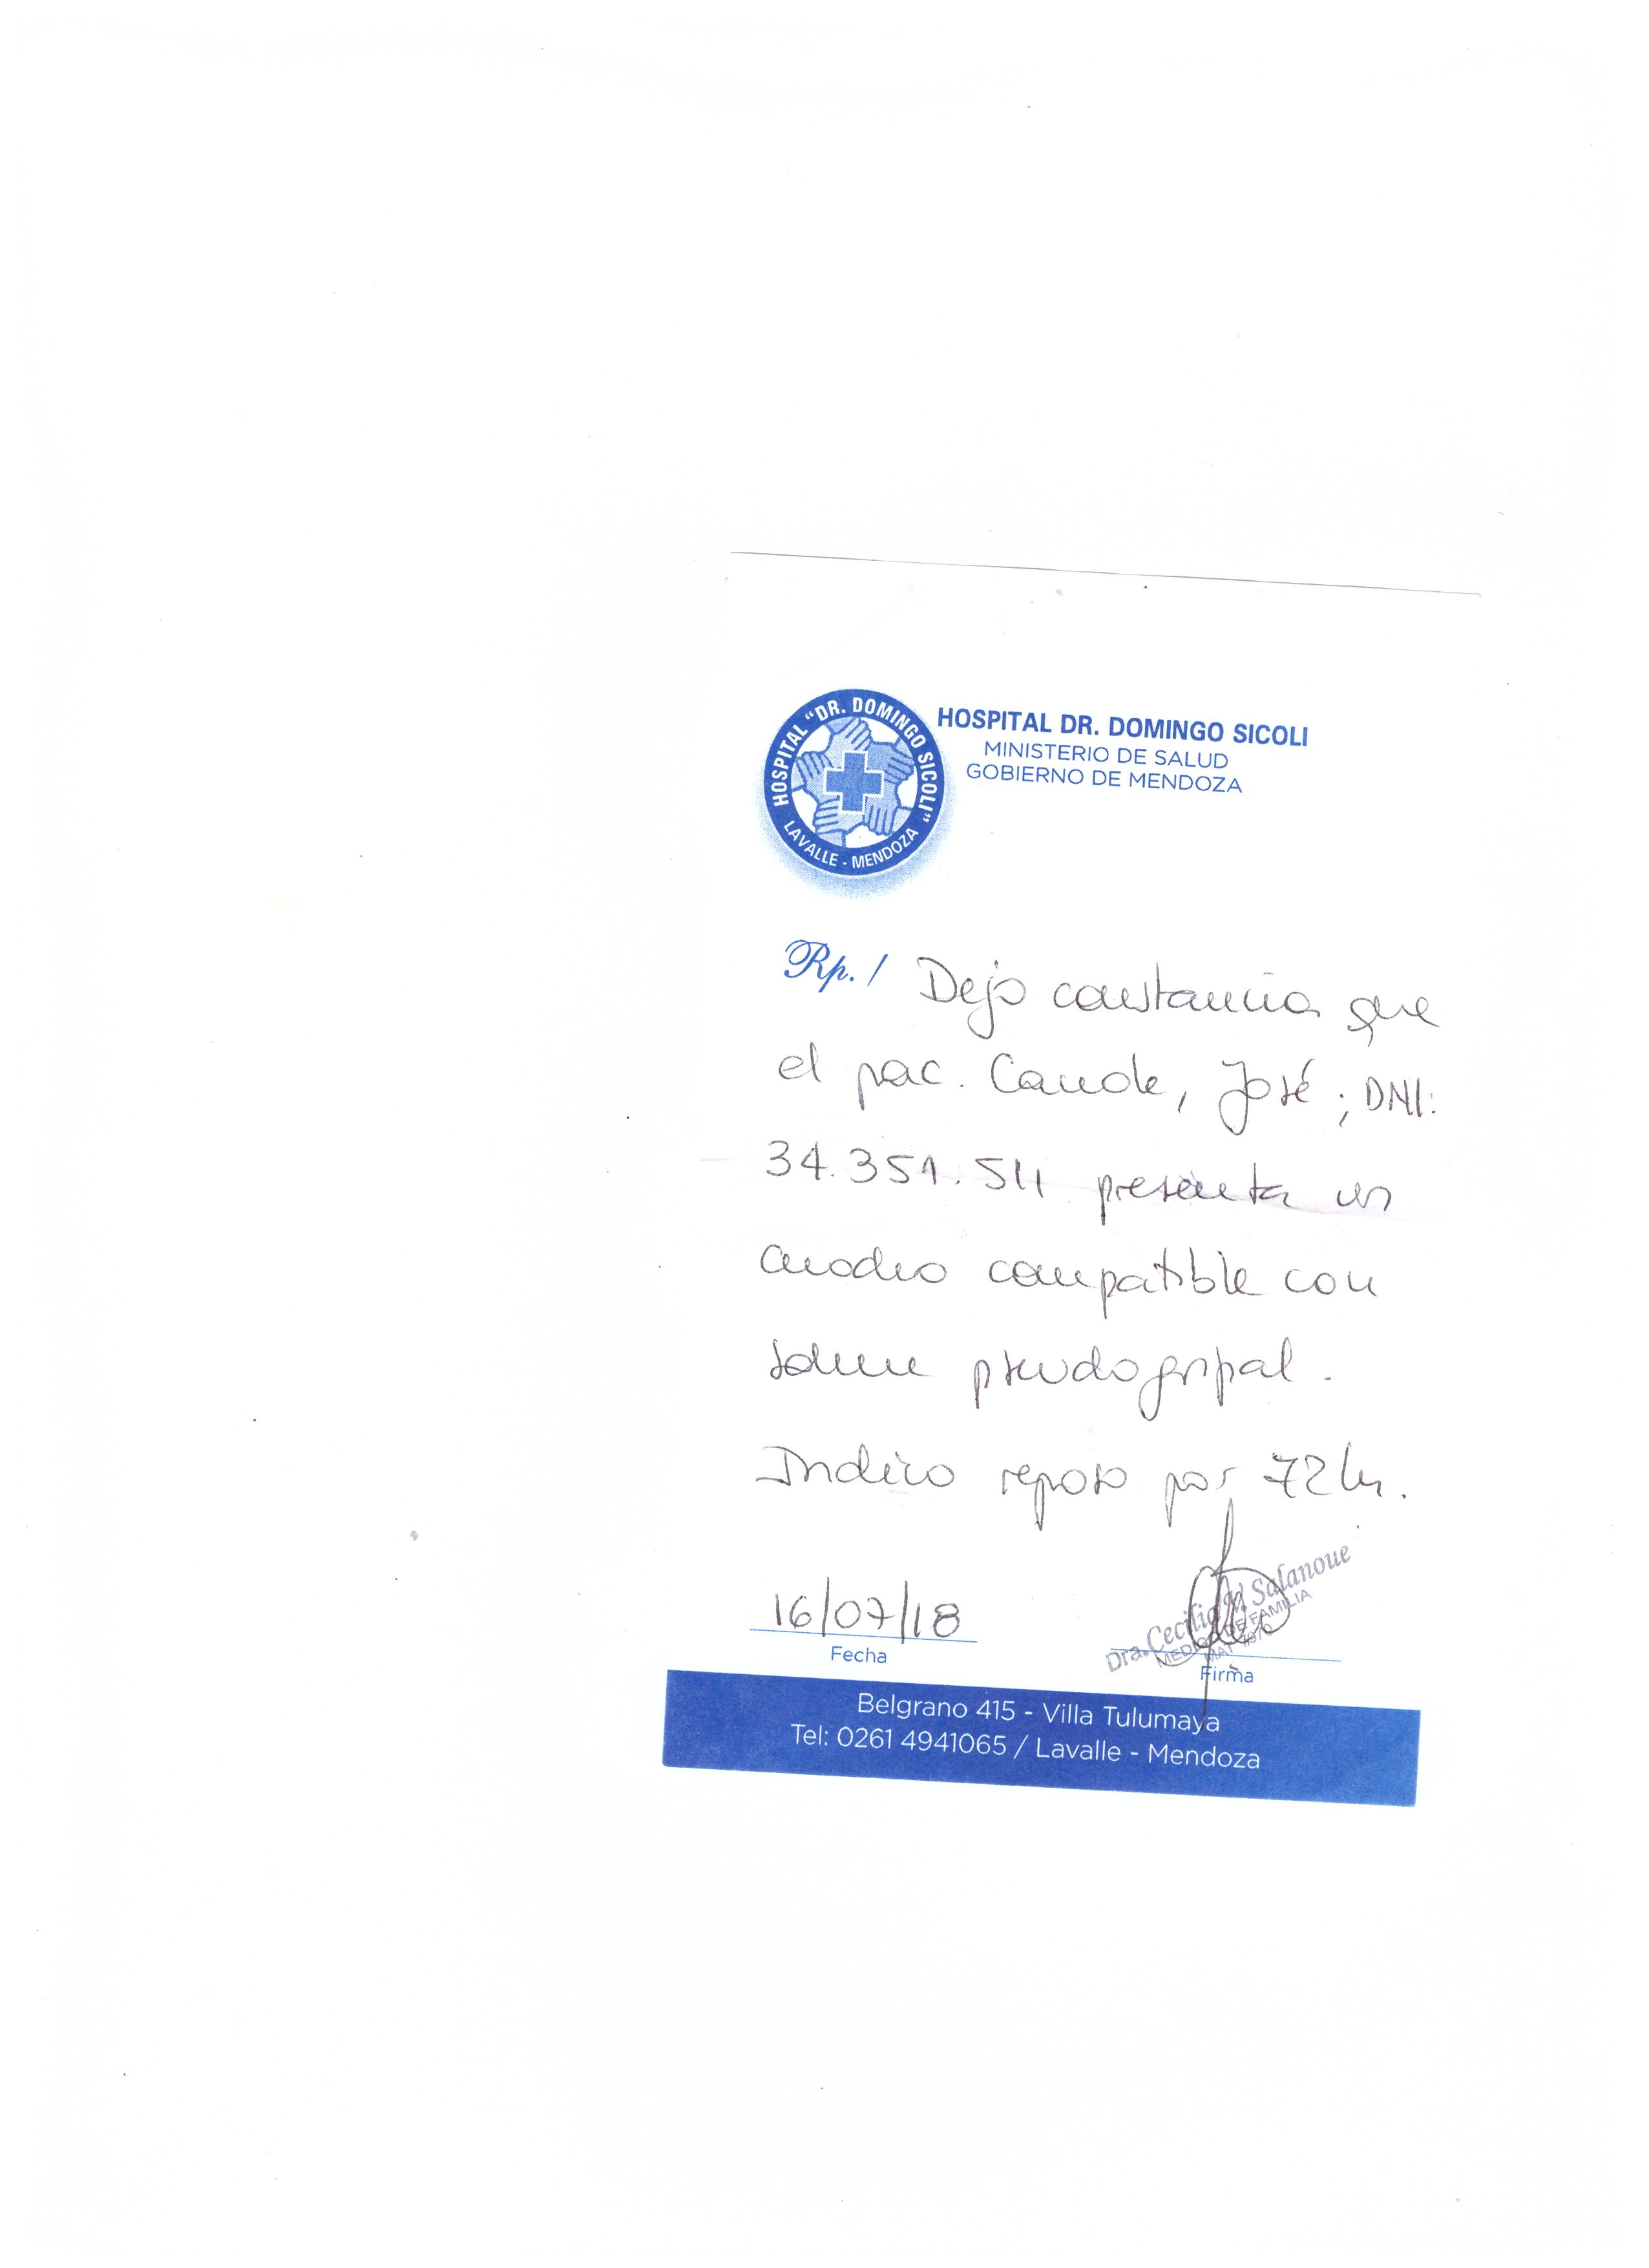 HOSPITAL "DR. DOMINGO SICOLI"
LAVALLE - MENDOZA
HOSPITAL DR. DOMINGO SICOLI
MINISTERIO DE SALUD
GOBIERNO DE MENDOZA
Rp. / Dejo constancia que
el pac. Conde, José; DNI:
34.351.511 presenta un
cuadro compatible con
sdme pseudogripal.
Indico reposo por 72hs.
16/07/18
Fecha
Dra. Cecilia Salanoue
MEDICA DE FAMILIA
MAT
Firma
Belgrano 415 - Villa Tulumaya
Tel: 0261 4941065 / Lavalle - Mendoza